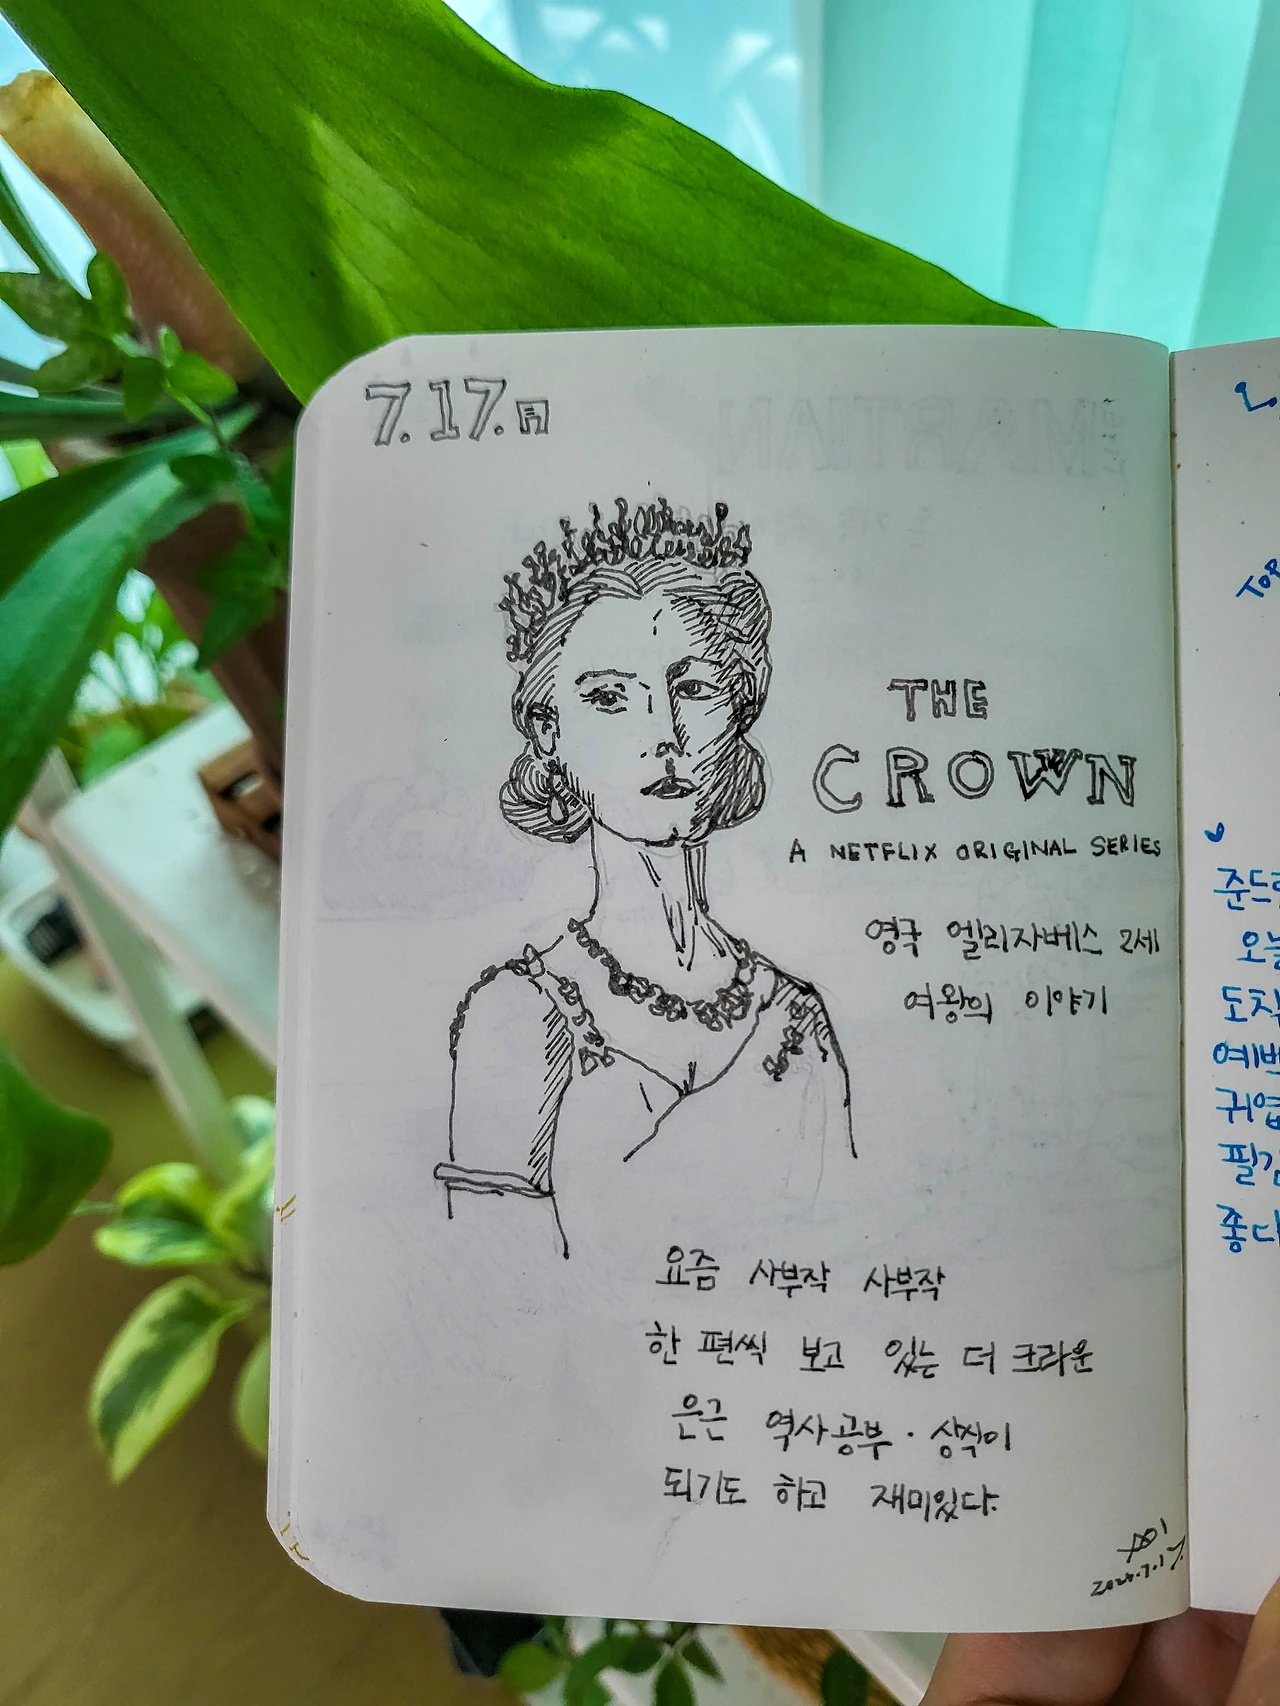 7.17.月
THE
CROWN
A NETFLIX ORIGINAL SERIES
영국 엘리자베스 2세
여왕의 이야기
요즘 사부작 사부작
한 편씩 보고 있는 더 크라운
은근 역사공부 · 상식이
되기도 하고 재미있다.
오늘
귀엽